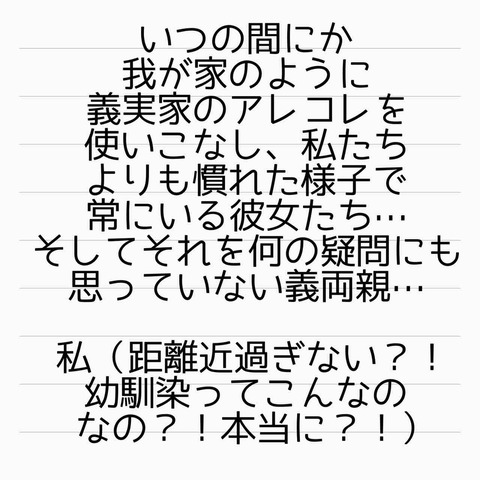 いつの間にか
我が家のように
義実家のアレコレを
使いこなし、私たち
よりも慣れた様子で
常にいる彼女たち…
そしてそれを何の疑問にも
思っていない義両親…
私（距離近過ぎない？！
幼馴染ってこんなの
なの？！本当に？！）